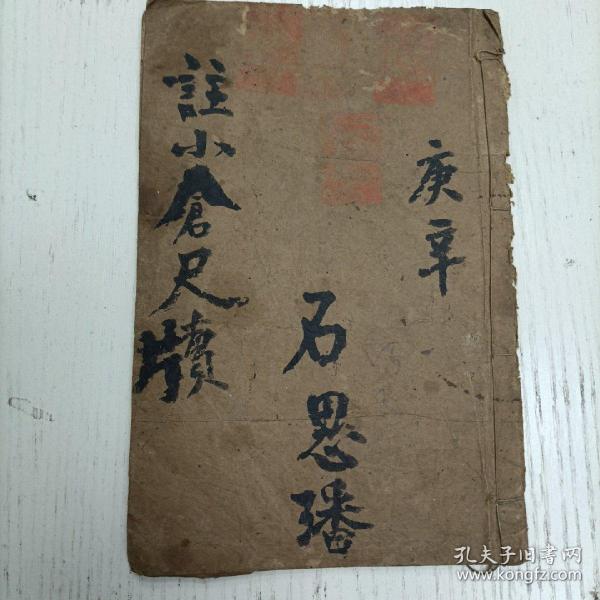 庚辛
石思璠
註小倉尺牘
孔夫子旧书网
www.kongfz.com